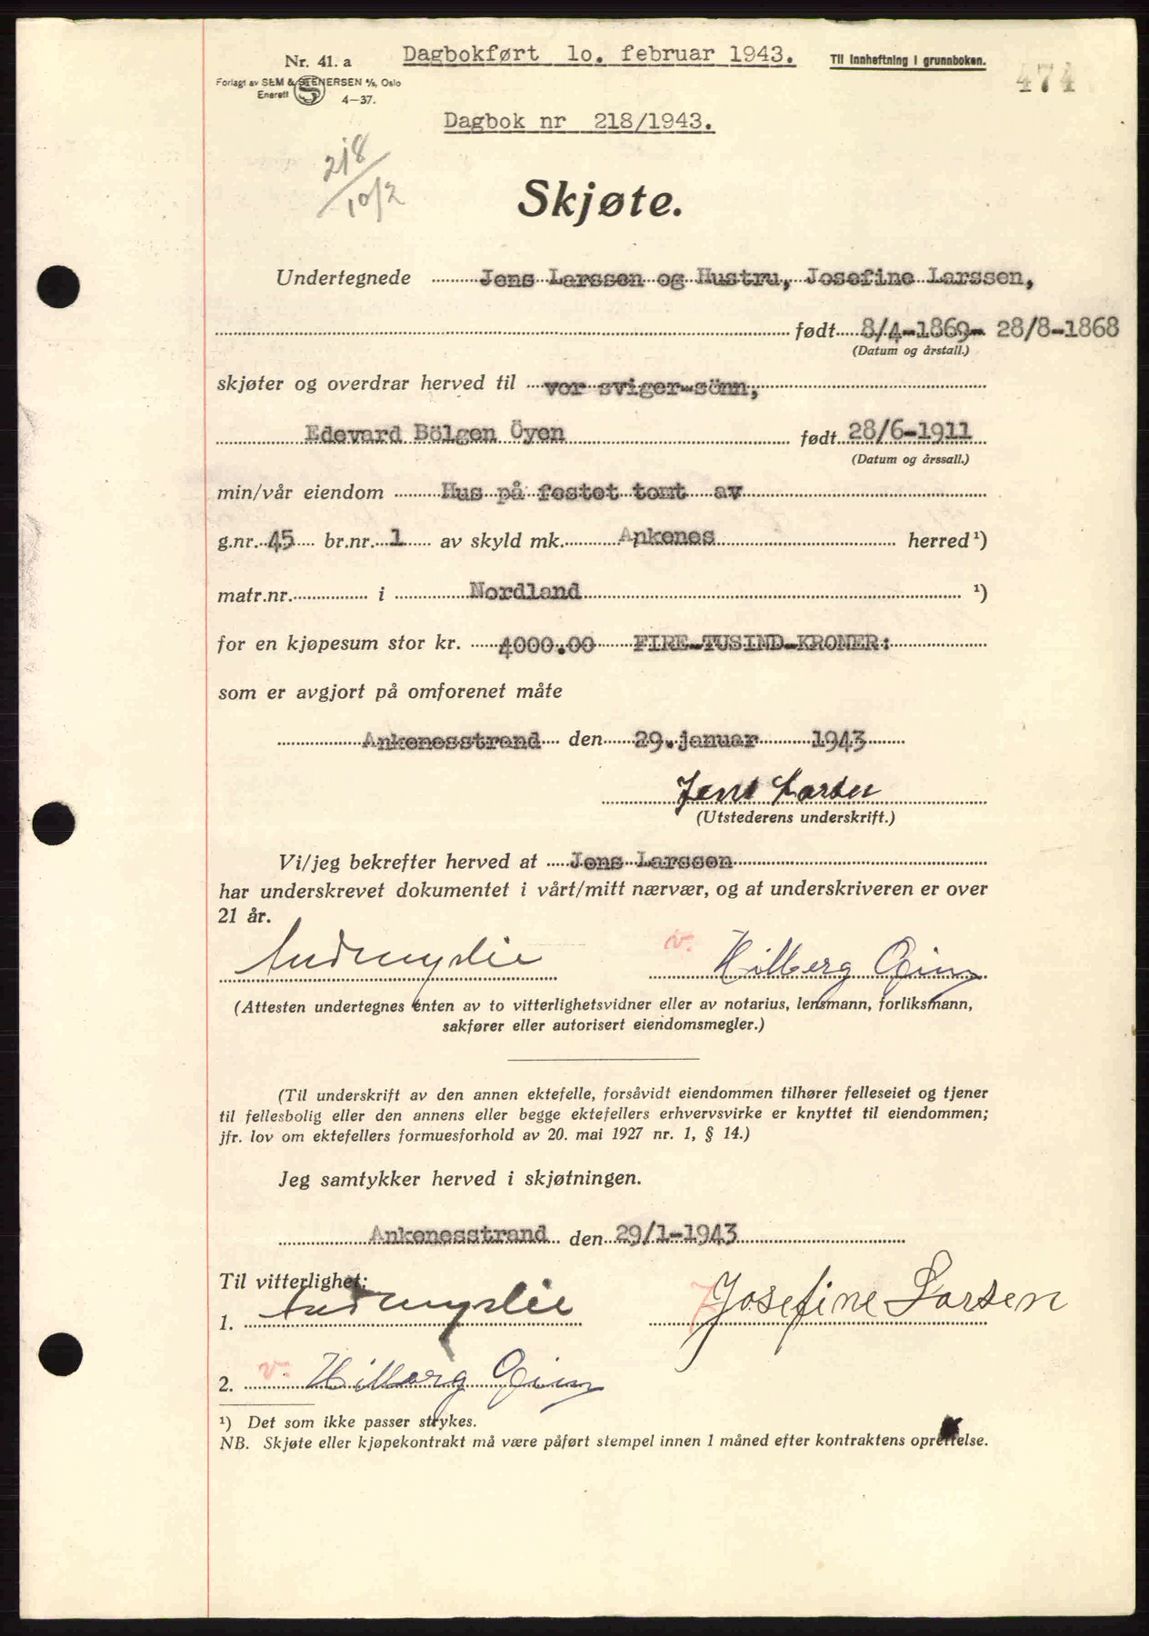 Nr. 41. a
Dagbokført 1o. februar 1943.
Til innheftning i grunnboken.
474
Forlagt av SEM & STENERSEN A/S, Oslo
Enerett
4—37.
Dagbok nr 218/1943.
218
10/2
Skjøte.
Undertegnede Jens Larssen og Hustru, Josefine Larssen,
født 8/4-1869- 28/8-1868
(Datum og årstall.)
skjøter og overdrar herved til vor sviger-sönn,
Edevard Bölgen Öyen født 28/6-1911
(Datum og årssall.)
min/vår eiendom Hus på festet tomt av
g.nr. 45 br.nr. 1 av skyld mk. Ankenes herred ¹)
matr.nr. i Nordland ¹)
for en kjøpesum stor kr. 4000.00 FIRE-TUSIND-KRONER:
som er avgjort på omforenet måte
Ankenesstrand den 29. januar 1943
Jens Larsen
(Utstederens underskrift.)
Vi/jeg bekrefter herved at Jens Larssen
har underskrevet dokumentet i vårt/mitt nærvær, og at underskriveren er over
21 år.
v. Hilberg
(Attesten undertegnes enten av to vitterlighetsvidner eller av notarius, lensmann, forliksmann,
sakfører eller autorisert eiendomsmegler.)
(Til underskrift av den annen ektefelle, forsåvidt eiendommen tilhører felleseiet og tjener
til fellesbolig eller den annens eller begge ektefellers erhvervsvirke er knyttet til eiendommen;
jfr. lov om ektefellers formuesforhold av 20. mai 1927 nr. 1, § 14.)
Jeg samtykker herved i skjøtningen.
Ankenesstrand den 29/1-1943
Til vitterlighet:
1. Josefine Larsen
2. v.
¹) Det som ikke passer strykes.
NB. Skjøte eller kjøpekontrakt må være påført stempel innen 1 måned efter kontraktens oprettelse.